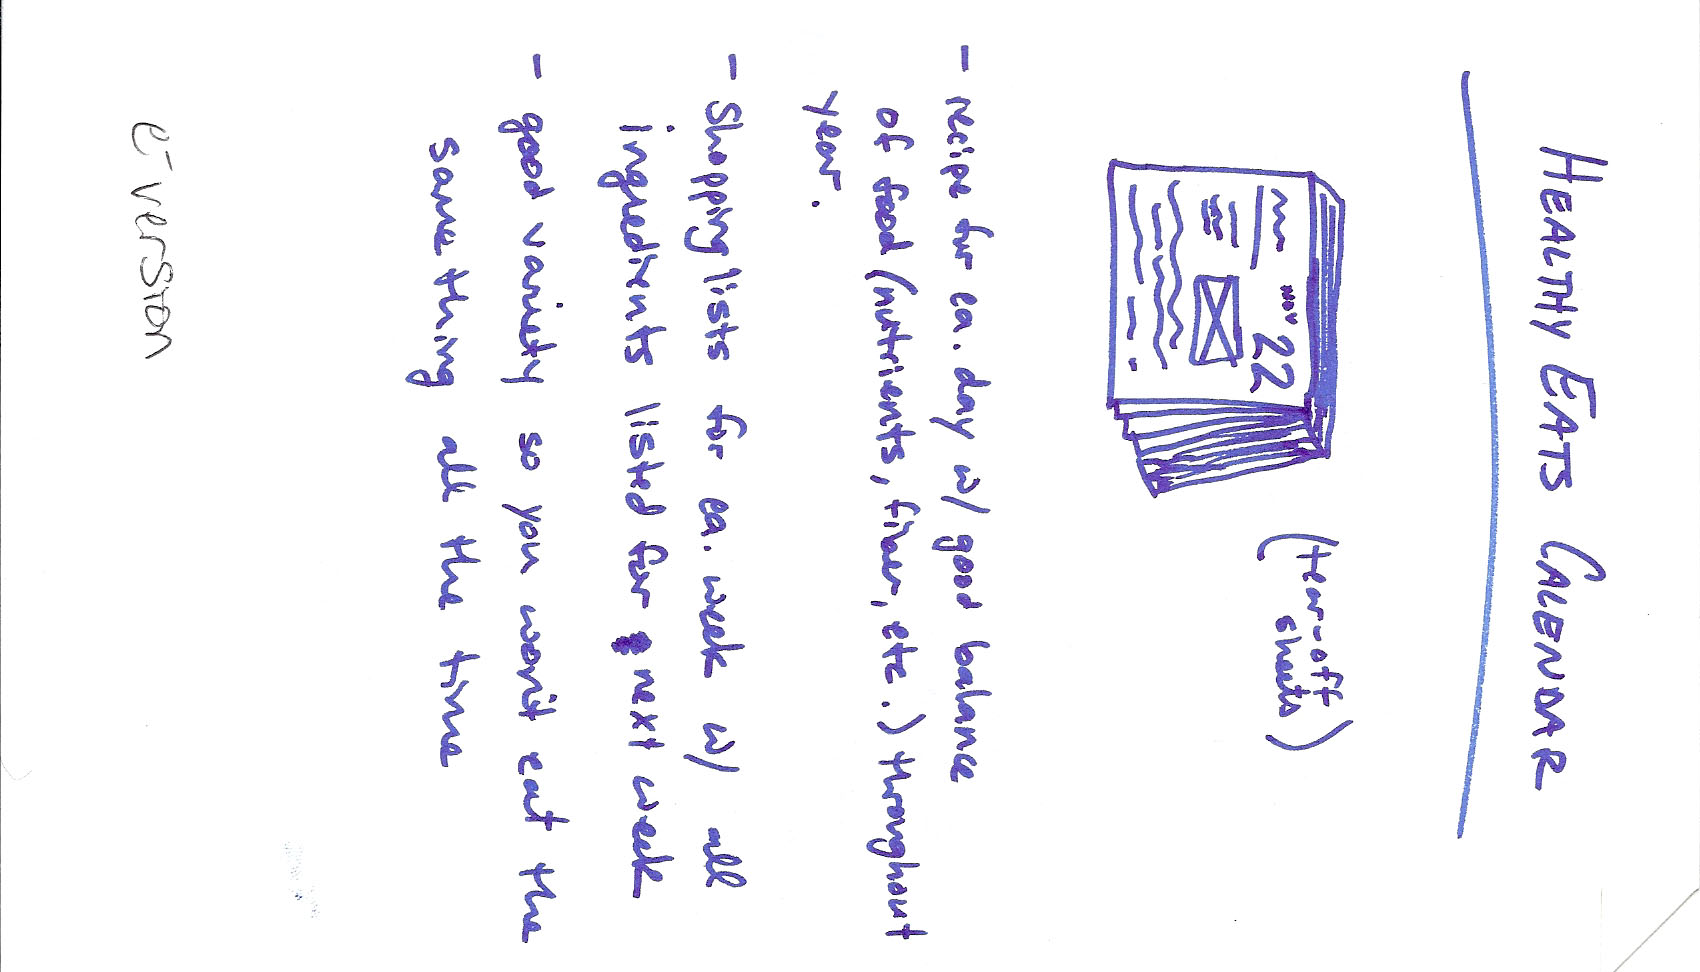 HEALTHY EATS CALENDAR
NOV 22
(tear-off
sheets)
- recipe for ea. day w/ good balance
of food (nutrients, fiber, etc.) throughout
year.
- Shopping lists for ea. week w/ all
ingredients listed for next week
- good variety so you won't eat the
same thing all the time
e-version